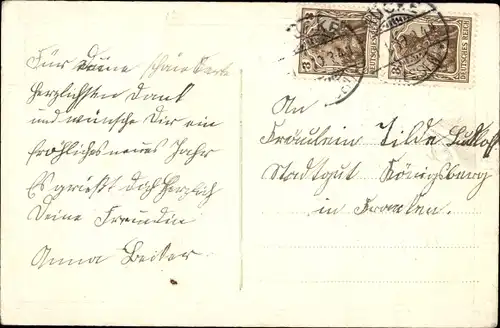 Für deine schöne Karte
herzlichsten Dank
und wünsche Dir ein
fröhliches neues Jahr
Es grießt dich herzlich
Deine Freundin
Anna
DEUTSCHES REICH
3
DEUTSCHES REICH
3
An
Fräulein Tilda
Stadtgut Königsberg
in Franken.